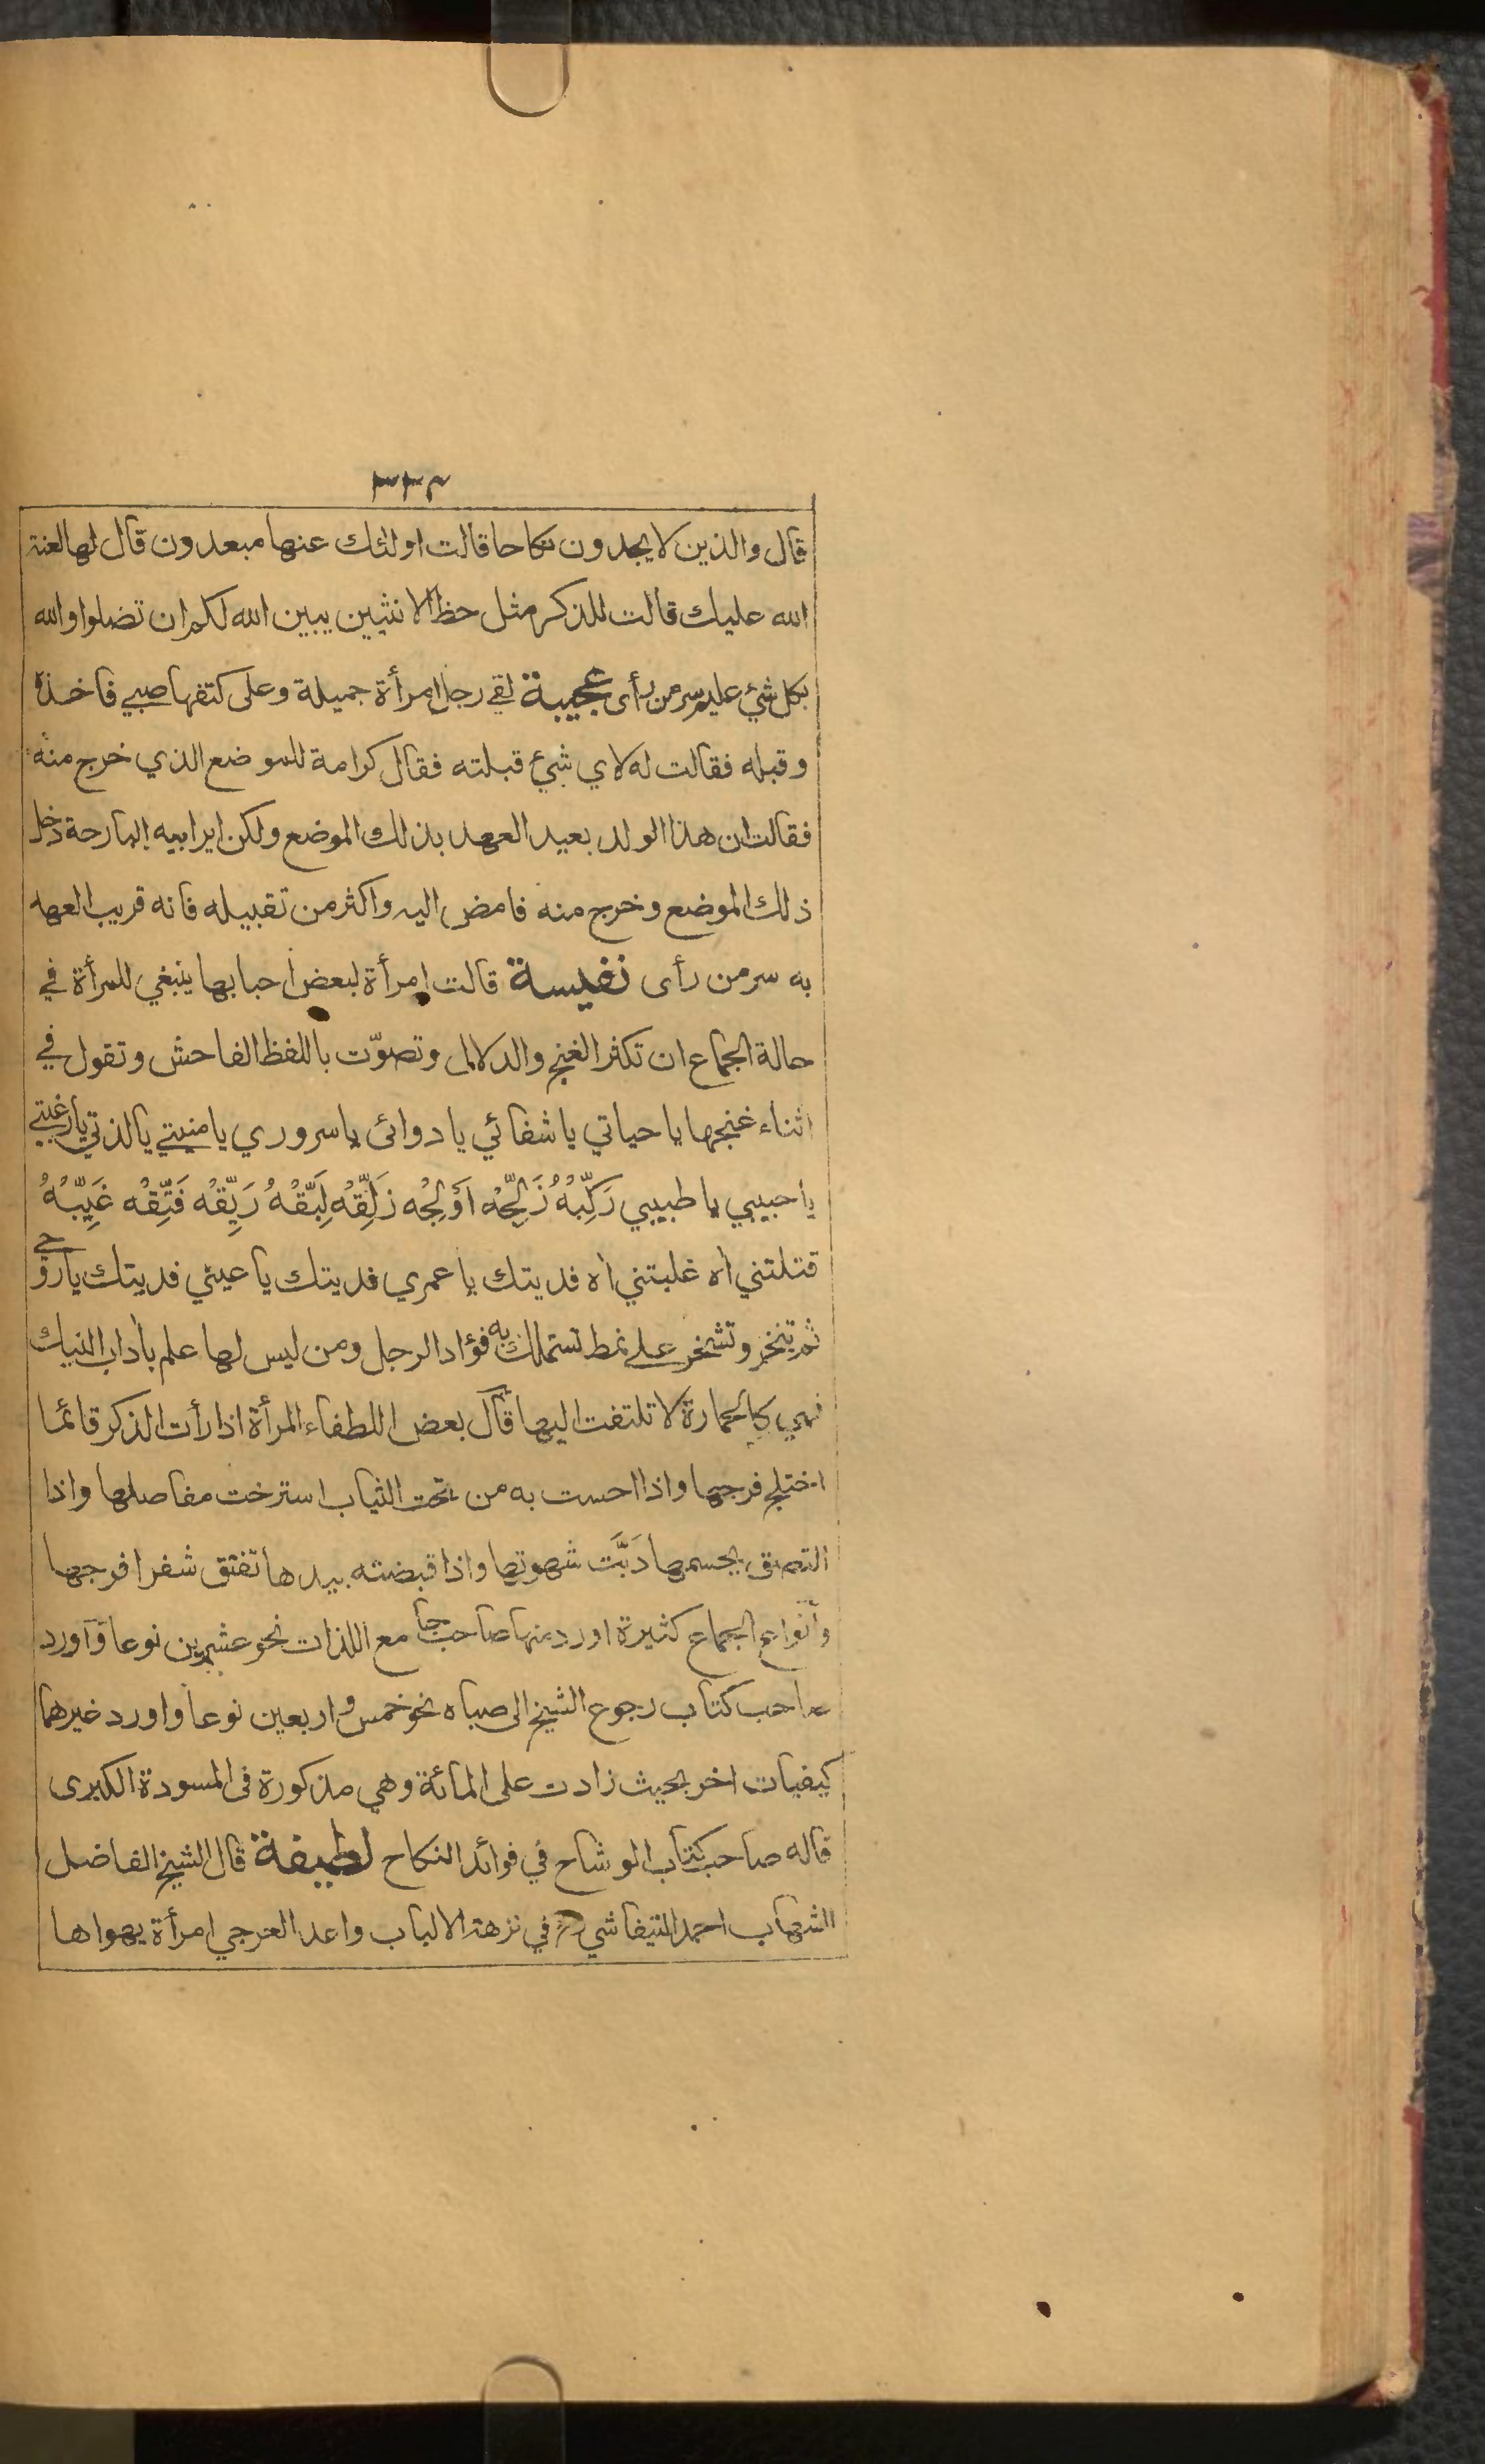 ٣٣٢
قال والذين لا يجدون نكاحا قالت اولئك عنها مبعدون قال لها لعنة
الله عليك قالت للذكر مثل حظ الانثيين يبين الله لكم ان تضلوا والله
بكل شئ عليم سر من رأى عجيبة لقي رجل امرأة جميلة وعلى كتفها صبي فاخذه
وقبله فقالت له لاي شئ قبلته فقال كرامة للموضع الذي خرج منه
فقالت ان هذا الولد بعيد العهد بذلك الموضع ولكن اير ابيه البارحة دخل
ذلك الموضع وخرج منه فامض اليه واكثر من تقبيله فانه قريب العهد
به سر من رأى نفيسة قالت امرأة لبعض احبابها ينبغي للمرأة في
حالة الجماع ان تكثر الغنج والدلال وتصوّت باللفظ الفاحش وتقول في
اثناء غنجها يا حياتي يا شفائي يا دوائى يا سروري يا منيتي يا لذتي يا رغبتي
يا حبيبي يا طبيبي رَكِّبْهُ زَلِّجْهُ اَوْلِجْه زَلِّقْه لَبِّقْهُ رَيِّقْه فَتِّقْه غَيِّبْهُ
قتلتني اه غلبتني اه فديتك يا عمري فديتك يا عيني فديتك يا روحي
ثم تنخر وتشخر على نمط تستملك به فؤاد الرجل ومن ليس لها علم بأداب النيك
فهي كالحمارة لا تلتفت اليها قال بعض اللطفاء المرأة اذا رأت الذكر قائما
اختلج فرجها واذا احست به من تحت الثياب استرخت مفاصلها واذا
التصق بجسمها دَبَّت شهوتها واذا قبضته بيدها تفتق شفرا فرجها
وأنواع الجماع كثيرة اورد منها صاحب جامع اللذات نحو عشرين نوعا وآورد
صاحب كتاب رجوع الشيخ الى صباه نحو خمس و اربعين نوعا واورد غيرهما
كيفيات اخر بحيث زادت على المائة وهي مذكورة فى المسودة الكبرى
قاله صاحب كتاب الوشاح في فوائد النكاح لطيفة قال الشيخ الفاضل
الشهاب احمد التيفاشي في نزهة الالباب واعد العرجي امرأة يهواها